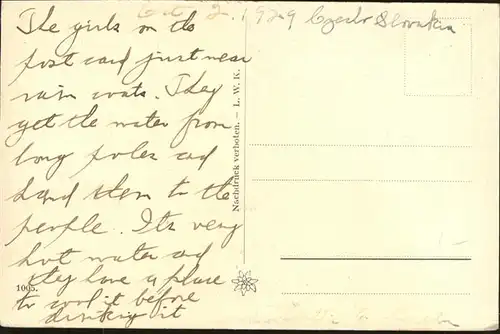 Oct. 2. 1929 Czecho Slovakia
The girls on the
post card just wear
rain coats. They
get the water from
long poles and
hand them to the
people. Its very
hot water and
they have a place
to cool it before
drinking it
1005.
Nachdruck verboten. – L. W. K.